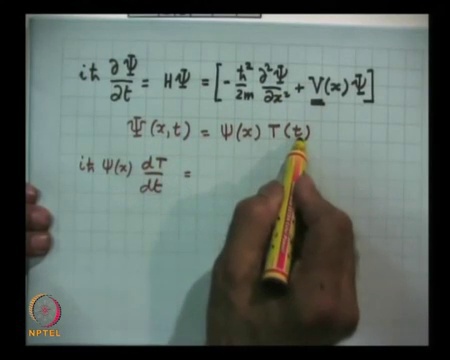 iħ ∂Ψ/∂t = HΨ = [-ħ²/2m ∂²Ψ/∂x² + V(x)Ψ]
Ψ(x,t) = ψ(x) T(t)
iħ ψ(x) dT/dt =
NPTEL